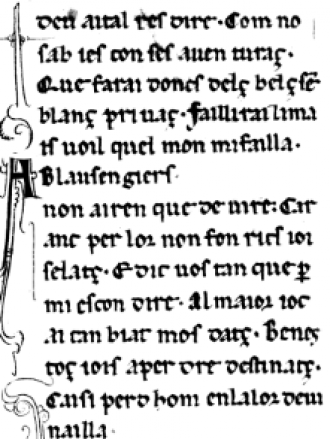 deu aital res dire. Com no
sab ies con ses auen turaç.
Que farai doncs dels bels sē
blanç pri uaç. Faillirai lima
is uoil quel mon mi failla.
A Blausengiers.
non airen que de uire: Car
anc per lor non fon rics ioi
selatç. E dic uos tan que p̲
mi escon dire. Al maior ioc
ai tan biat mos datç. Benes
toç iois aper dre destinatç.
Causi perd hom en la lor deui
nailla.